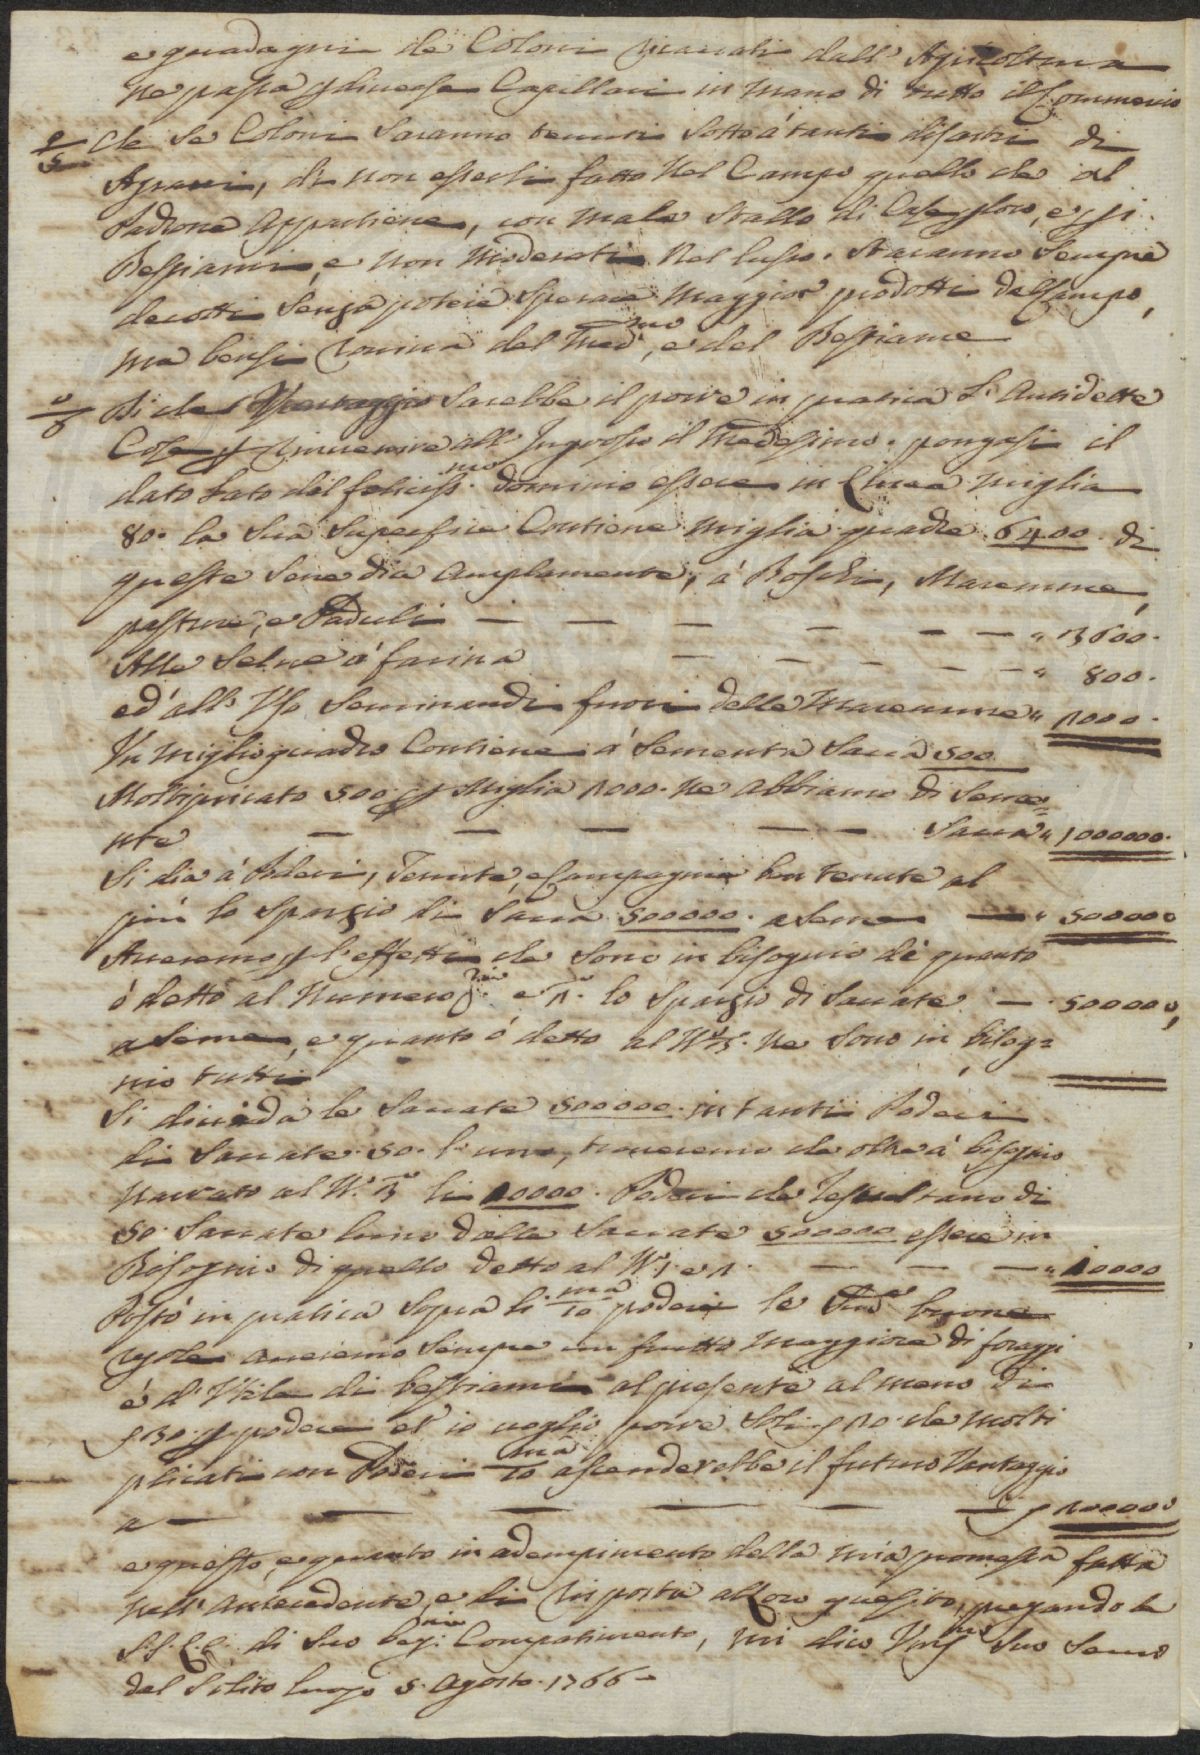 e guadagni de Coloni ricavati dall' Agricoltura
ne passa p diverse Capillari in mano di tutto il Commercio
5 Che se Coloni saranno tenuti sotto á tanti disastri di
Aggravi, di non esserli fatto nel Campo quello che al
Padrone appartiene, con mala stallo di Case p loro, e p i
Bestiami, e non moderati nel lusso. Staranno sempre
decotti senza potere sperare maggior prodotti dal Campo,
ma bensi rovina del med.mo, e del Bestiame
6 Di che Vantaggio sarebbe il porre in pratica l' Antidette
Cose p rinvenire all' Ingrosso il medesimo. pongasi il
dato stato del feliciss.mo dominio essere in Linea miglia
80. la sua superficie Contiene miglia quadre 6400. di
queste sene dia amplamente, á Boschi, Maremme,
pasture, e Paduli — — — — — — " 3600.
Alle Selve á farina — — — — — — " 800.
ed' all' Uso Seminandi fuori delle Maremme " 1000.
Un miglio quadro Contiene á Sementa Sacca 500
Moltipricato 500. p Miglia 1000. ne abbiamo di Seme=
nte — — — — — Sacca " 1000000.
Si dia á Poderi, Tenute, e Campagnia ben tenute al
piú lo Spazio di Sacca 500000. a Seme — " 500000
Averemo p l' effetti che sono in bisognio dé quanto
ó detto al Numero e lo Spazio di Saccate — 500000,
a Seme, e quanto ó detto al N.o 5. ne sono in bisog=
nio tutti
Si divida le Saccate 500000. in tanti Poderi
di Saccate 50. l' uno, troveremo che oltre á bisognio
narrato al N.o li 10000. Poderi che resultano di
50 Saccate luno dalle Saccate 500000 essere in
Bisognio di quello detto al N.o — — — " 10000
Posto in pratica sopra li 10/ma poderi le Sud.e buone
regole averemo sempre un frutto maggiore di foraggi
é d' Utile di bestiami al presente al meno di
30. p podere et io voglio porre soli 10. che molti
plicati con Poderi 10/ma ascenderebbe il futuro Vantaggio
a — — — — — 100000
e questo, e quanto in adempimento della mia promessa fatta
nell' antecedente, e di risposta al Loro quesito, pregando le
S.S. E.E. di suo begn.nio Compatimento, mi dico Umil.mo suo Servo
dal Solito luogo 5. Agosto. 1766 —